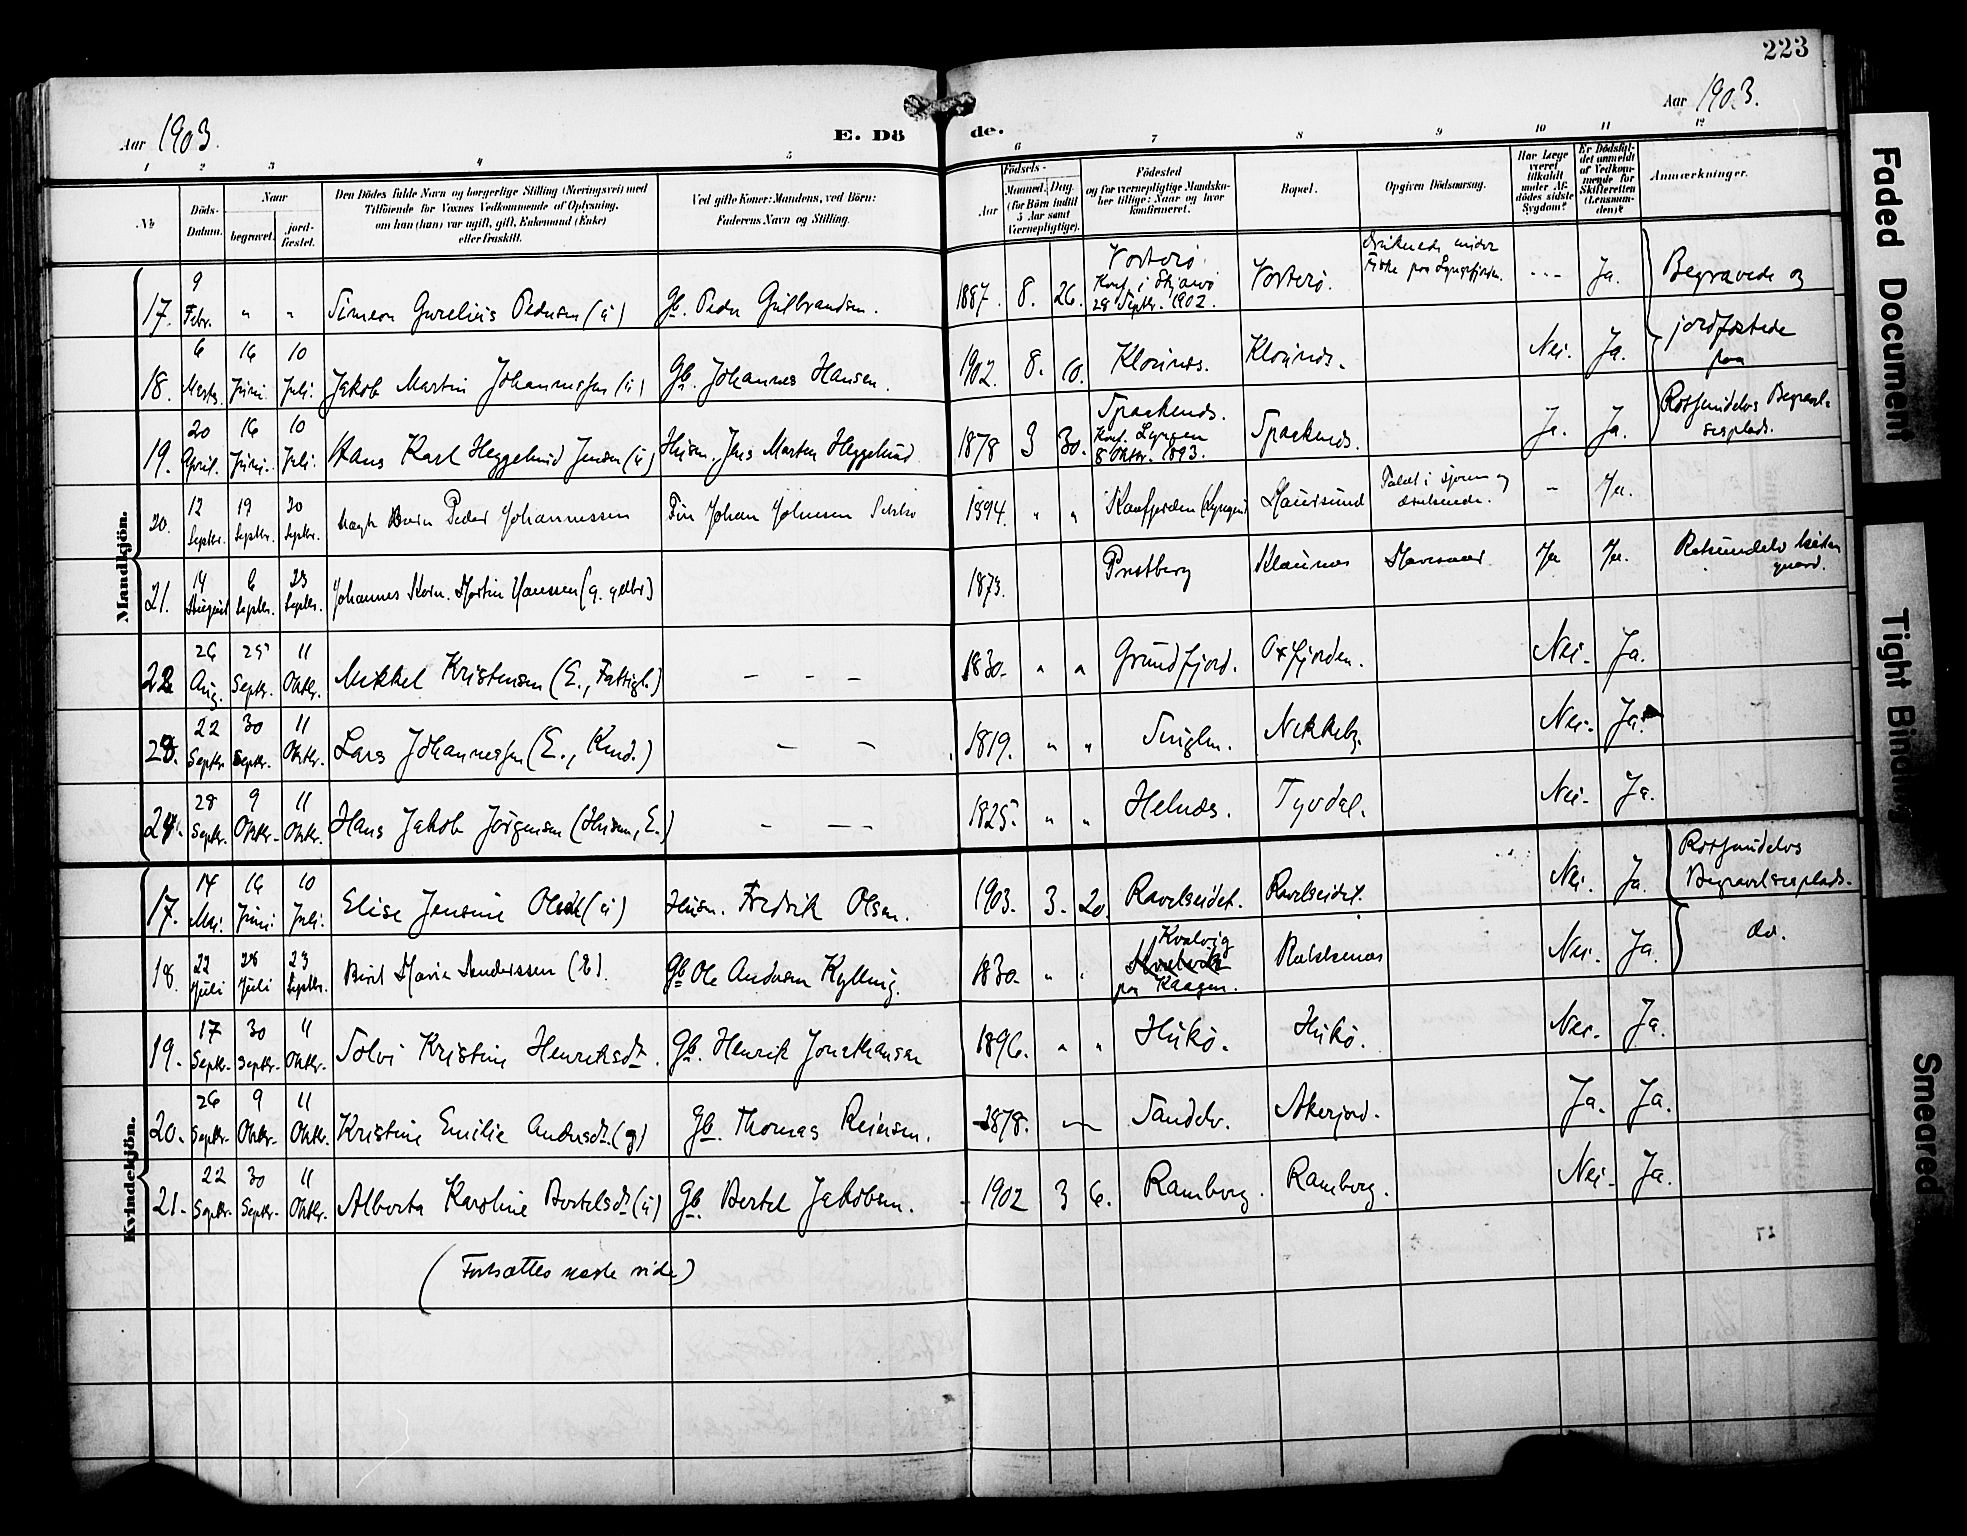 223
Aar 1903.
E. Dö
de.
Aar 1903.
1 2 3 4 5 6 7 8 9 10 11 12
No
Döds-
Datum.
Naar
begravet.
jord-
fæstet.
Den Dödes fulde Navn og borgerlige Stilling (Næringsvei) med
Tilföiende for Voxnes Vedkommende af Oplysning,
om han (hun) var ugift, gift, Enkemand (Enke)
eller fraskilt.
Ved gifte Koner: Mandens, ved Börn:
Faderens Navn og Stilling.
Födsels-
Aar
Maaned. Dag.
(for Börn indtil
5 Aar samt
Værnepligtige).
Födested
og for værnepligtige Mandska-
ber tillige: Naar og hvor
konfirmeret.
Bopæl.
Opgiven Dödsaarsag.
Har Læge
været
tilkaldt
under Af-
dödes sidste
Sygdom?
Er Dödsfal-
det anmeldt
af Vedkom-
mende for
Skifteretten
(Lensman-
den)?
Anmærkninger.
Mandkjön.
17. 9 Febr. " " Simeon Gurelius Pedersen (ü) Gb. Peder Gulbrandsen. 1887. 8. 26. Vorterö.
Konf. i Skjærvö
28 Septr. 1902.
Vorterö.
Druknede under
Fiske paa Lyngsfjorden.
--- Ja. Begravede og
18. 6 Marts. 16 Juni. 10 Juli. Jakob Martin Johannessen (ü) Gb. Johannes Hansen. 1902. 8. 10. Klounæs. Klouinæs. Nei. Ja. jordfæstede
paa
19. 20 April. 16 Juni. 10 Juli. Hans Karl Heggelund Jensen (ü) Husm. Jens Morten Heggelund 1878 3 30. Spaakenæs.
Konf. Lyngen
8 Oktbr. 1893.
Spaakenæs. Ja. Ja. Rotsundelvs Begravel-
sesplads.
20. 12 Septbr. 19 Septbr. 20 Septbr. Peder Johannessen Fin Johan Johnsen 1894. " " Kaafjorden (Lyngen) Maursund Faldt i sjøen og
druknede.
- Ja.
21. 14 August 6 Septbr. 23 Septbr. Johannes Korn. Martin Hanssen (g. gdbr) 1873. Prestberg Klaunæs Ja Ja. Rotsundelv kirke-
gaard.
22 26 Aug. 25 Septr. 11 Oktbr. Mikkel Kristensen (E., Fattigl.) - - - 1830. " " Grundfjord. Oxfjorden. Nei. Ja.
23. 22 Septbr. 30 Septr. 11 Oktbr. Lars Johannessen (E., Kaad.) - - 1819. " " Singlen. Nikkelby. Nei. Ja.
24. 28 Septr. 9 Oktbr. 11 Oktbr. Hans Jakob Jørgensen (Husm., E.) - - - 1825. " " Helnæs. Tyvdal. Nei. Ja.
Kvindekjön.
17. 14 Mai. 16 Juni. 10 Juli. Elise Jensine Olsdt (ü) Husm. Fredrik Olsen. 1903. 3. 20. Ravelseidet. Ravelseidet. Nei. Ja. Rotsundelvs
Begravelsesplads.
18. 22 Juli 28 Juli 23 Septbr. Berit Maria Andersen (E). Gb. Ole Andersen Kylling. 1830. " " Kvalvig
paa Kaagen.
Rakkenæs Nei. Ja. do.
19. 17 Septr. 30 Septbr. 11 Oktbr. Solvi Kristine Henriksdt. Gb. Henrik Jonathansen 1896. " " Hukö. Hukö. Nei. Ja.
20. 26 Septr. 9 Oktbr. 11 Oktbr. Kristine Emilie Andersdt. (g) Gb. Thomas Reiersen. 1878. Sandelv. Akerjord. Ja. Ja.
21. 22 Septr. 30 Septr. 11 Oktbr. Alberta Karoline Bertelsdt (ü) Gb. Bertel Jakobsen. 1902 3 6. Ramborg. Ramborg. Nei. Ja.
(Fortsættes næste side)
Faded Document
Tight Binding
Smeared